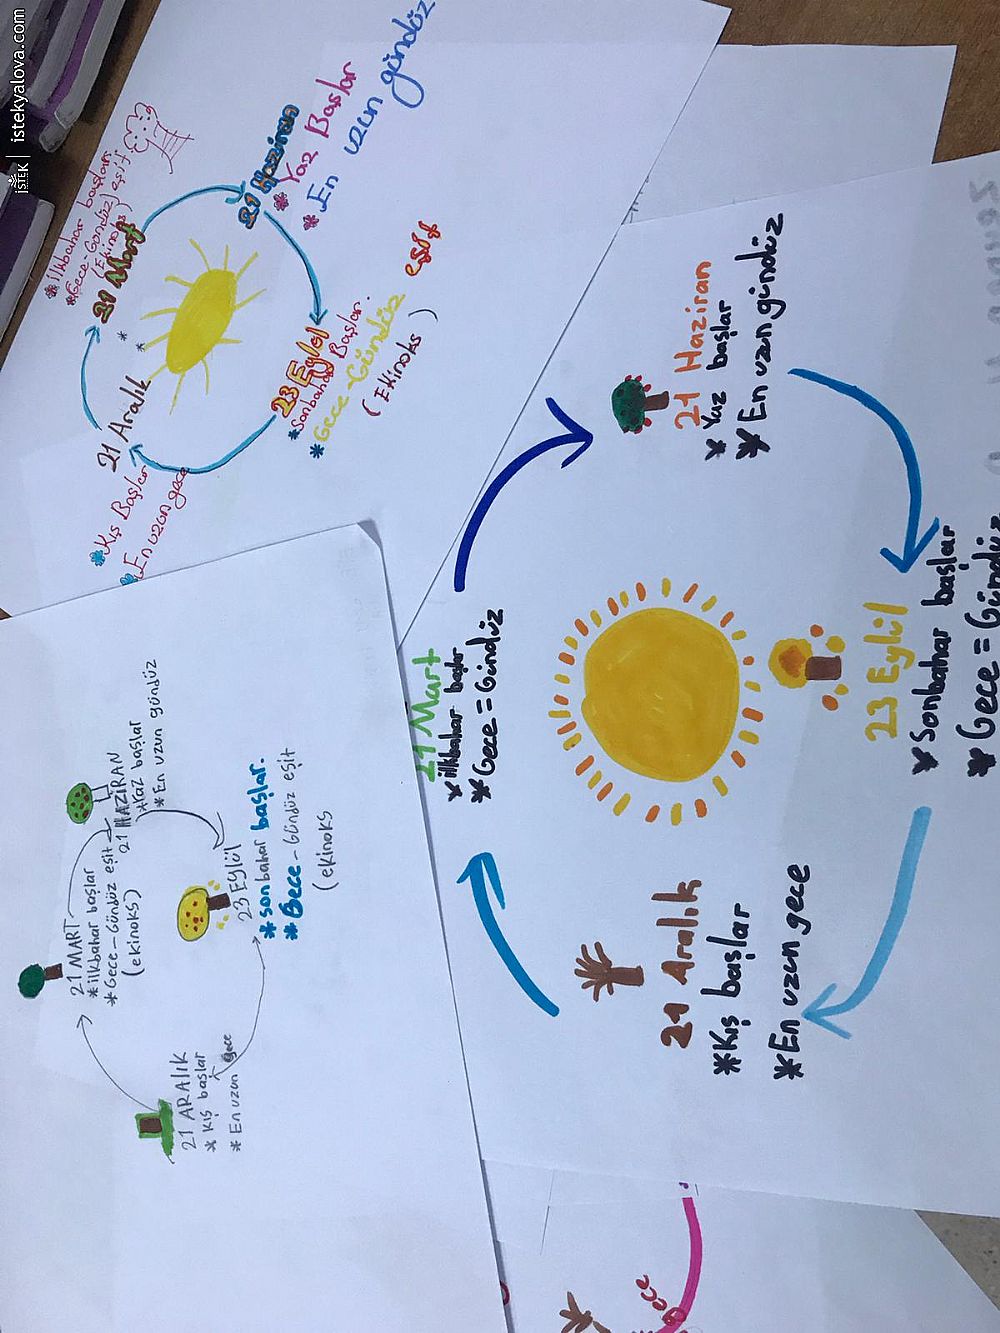 İSTEK | istekyalova.com
21 Mart
* ilkbahar başlar
* Gece-Gündüz eşit
(Ekinoks)
21 Haziran
* Yaz Başlar
* En uzun gündüz
23 Eylül
* Sonbahar Başlar.
* Gece-Gündüz eşit
(Ekinoks)
21 Aralık
* Kış Başlar
* En uzun gece
21 MART
* ilkbahar başlar
* Gece-Gündüz eşit
(ekinoks)
21 HAZİRAN
* Yaz başlar
* En uzun gündüz
23 Eylül
* sonbahar başlar.
* Gece-Gündüz eşit
(ekinoks)
21 ARALIK
* Kış başlar
* En uzun gece
21 Mart
* ilkbahar başlar
* Gece = Gündüz
21 Haziran
* Yaz başlar
* En uzun gündüz
23 Eylül
* Sonbahar başlar
* Gece = Gündüz
21 Aralık
* Kış başlar
* En uzun gece